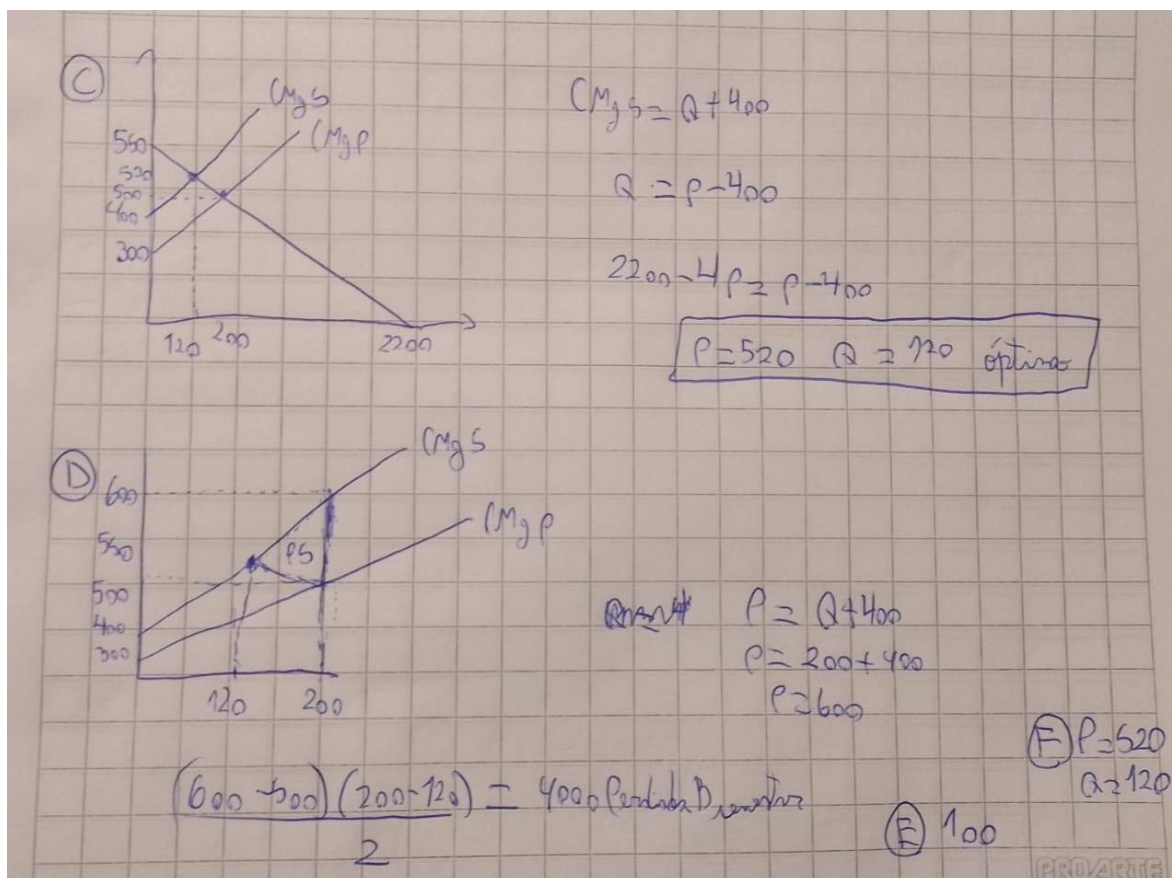 C
CMgS
CMgP
550
520
500
400
300
120 200 2200
CMgS = Q + 400
Q = P - 400
2200 - 4P = P - 400
P = 520 Q = 120 óptimo
D
CMgS
CMgP
600
550
500
400
300
PS
120 200
P = Q + 400
P = 200 + 400
P = 600
(600 - 500) (200 - 120) = 4000 Perdida
2
E 100
F P = 520
Q = 120
PROARTE